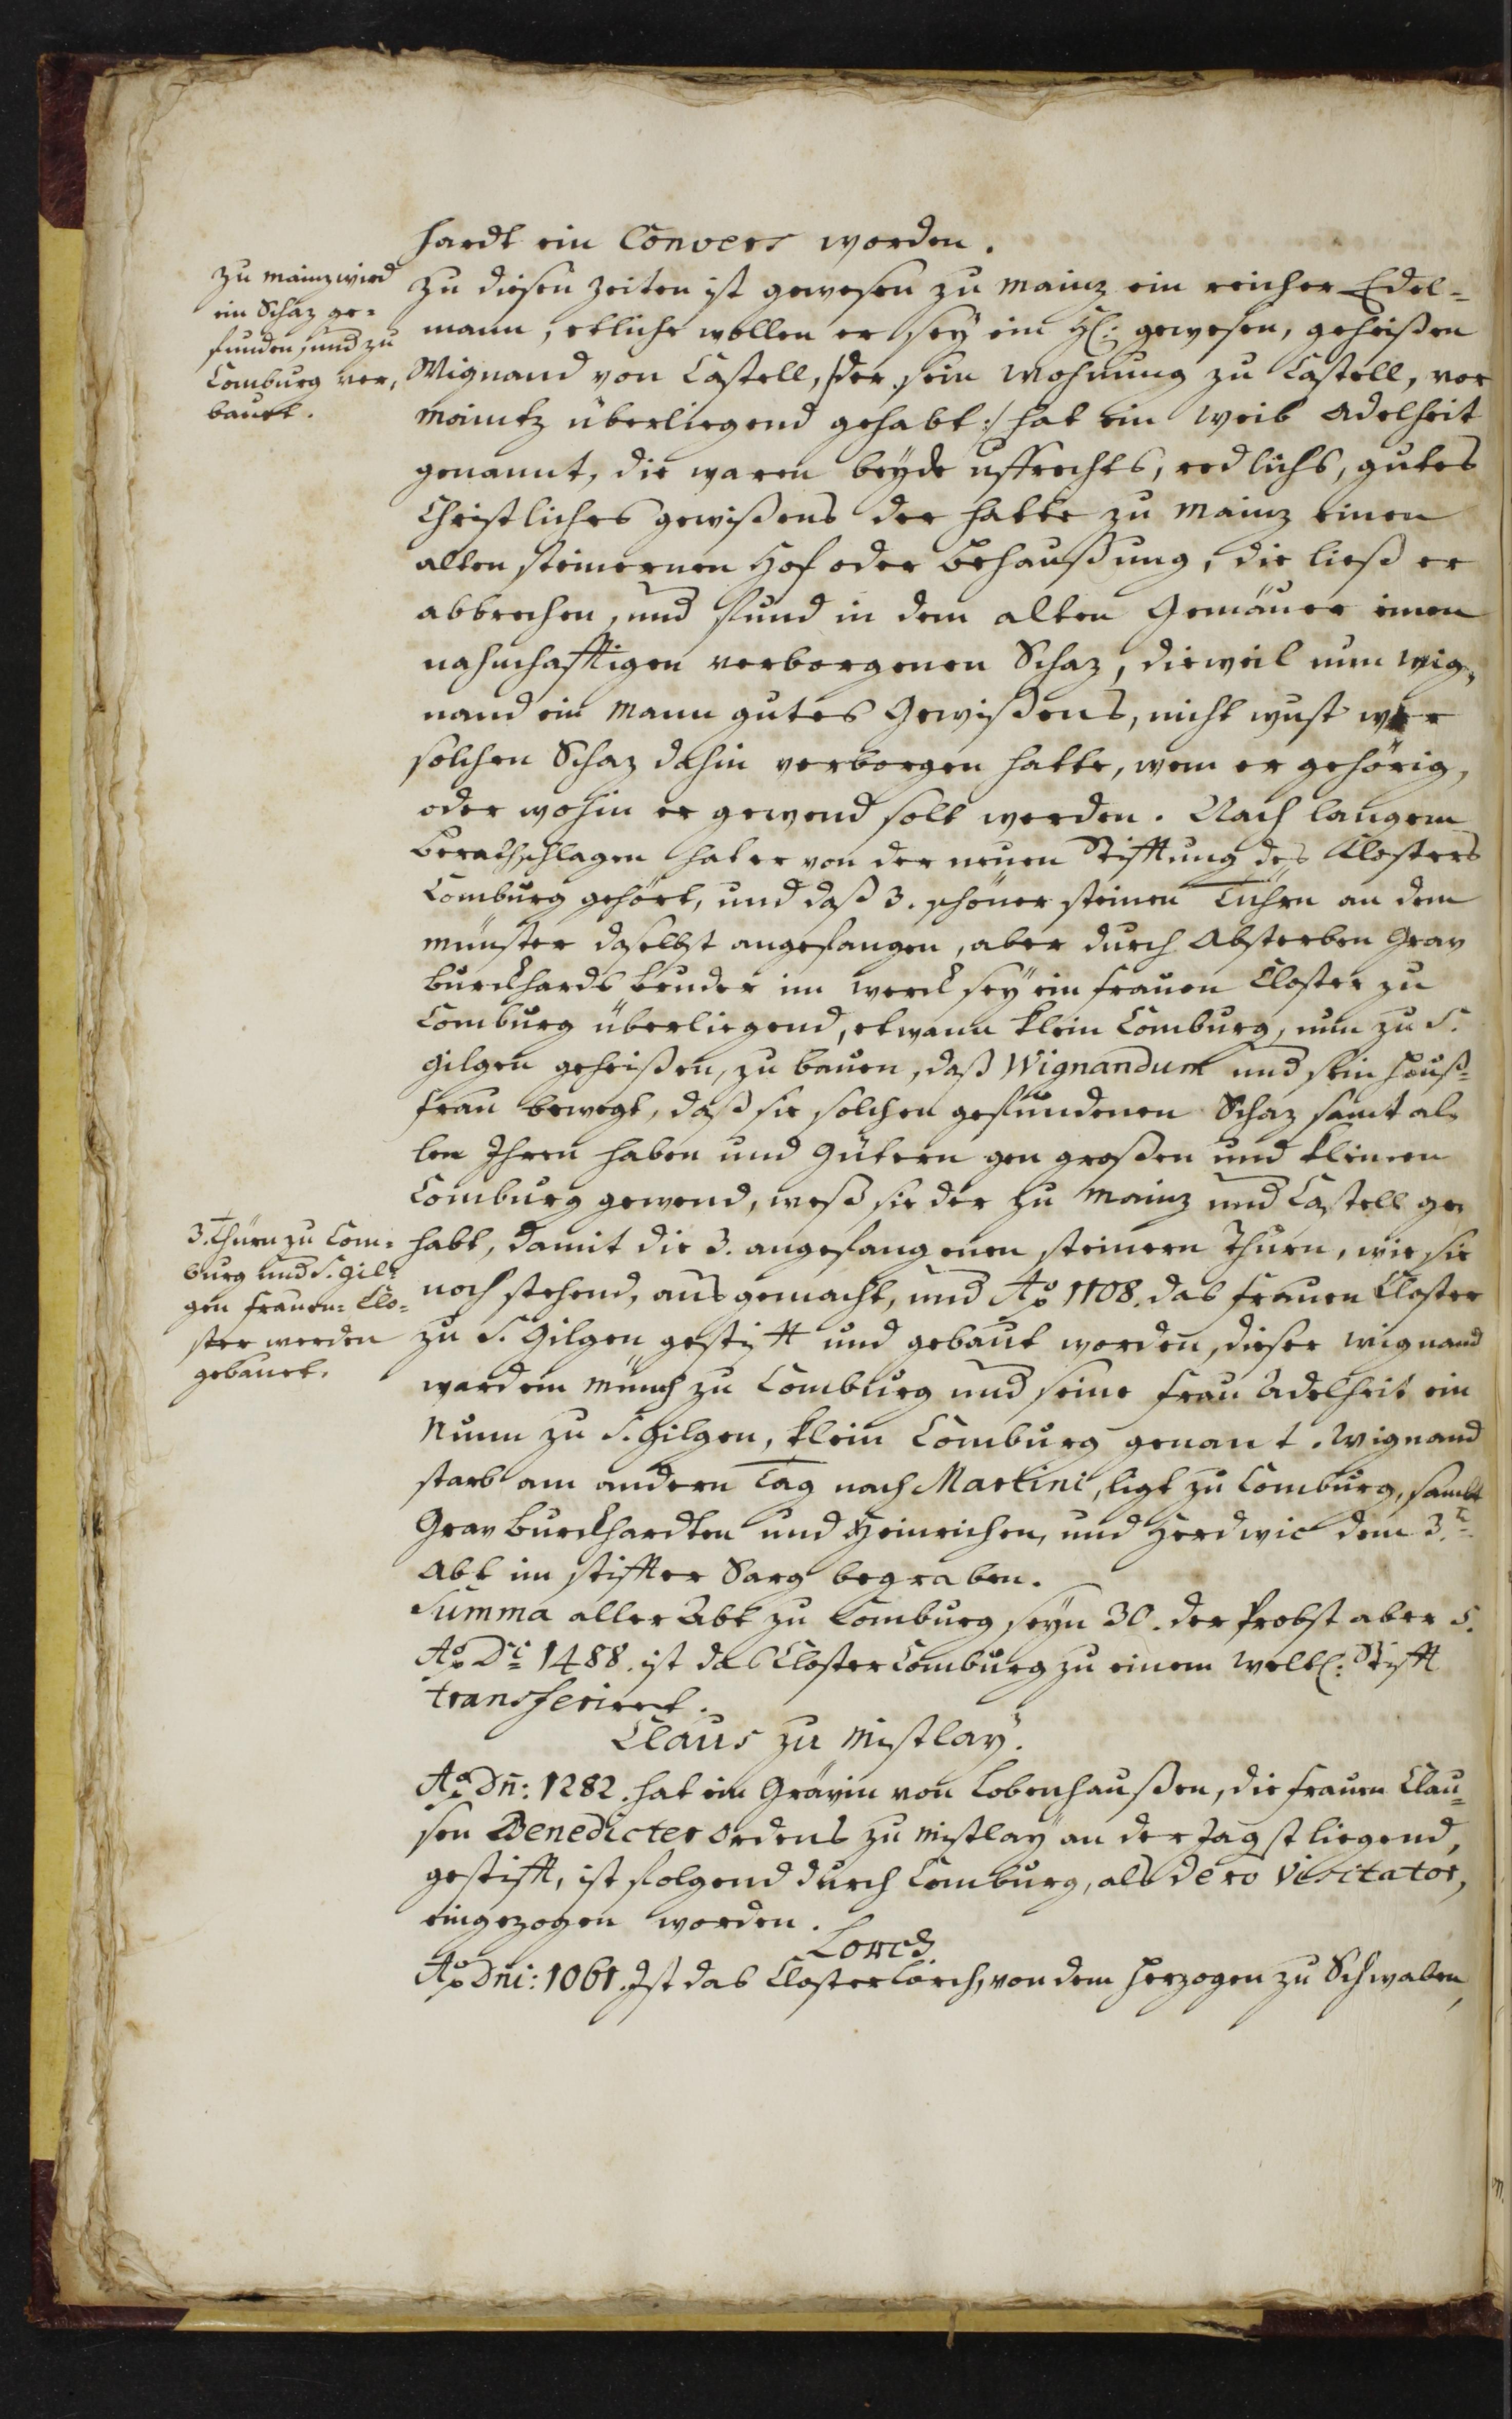 hardt ein Convers worden.
Zu Mainz wird
ein Schaz ge-
funden, und zu
Comburg ver,
bauet.
Zu diesen Zeiten ist gewesen zu Mainz ein reicher Edel-
mann, etliche wollen er sey ein H: gewesen, geheißen
Wignand von Castell, /:der sein Wohnung zu Castell, vor
Maintz überliegend gehabt:/ hat ein Weib Adelheit
genannt, die waren beyde uffrechts, redlichs, gutes
Christliches gewißens der hatte zu Mainz einen
alten steinernen Hof oder behaußung, die ließ er
abbrechen, und fund in dem alten Gemäuer einen
nahmhafftigen verborgenen Schaz, dieweil nun Wig,
nand ein Mann gutes Gewißens, nicht wust wer
solchen Schaz dahin verborgen hatte, wem er gehörig,
oder wohin er gewend solt werden. Nach langem
berathschlagen hat er von der neuen Stifftung des Klosters
Comburg gehört, und daß 3. schöner steinen Türn an dem
Münster daselbst angefangen, aber durch Absterben Grav
burckhards bruder im werck sey ein frauen Closter zu
Comburg überliegend, etwann klein Comburg, nun zu S.
Gilgen geheißen, zu bauen, daß Wignandum und sein Hauß-
frau bewegt, daß sie solchen gefundenen Schaz samt al-
len Ihren haben und Gütern gen großen und kleinen
Comburg gewend, weß sie der zu Mainz und Castell ge-
3. Thürn zu Com-
burg und S. Gil-
gen frauen-Clo-
ster werden
gebauet.
habt, damit die 3. angefangenen steinern Thurn, wie sie
noch stehend, ausgemacht, und Aō 1108. das frauen Closter
zu S. Gilgen gestifft und gebaut worden, dieser Wignand
ward ein Münch zu Comburg und seine frau Adelheit ein
Nunn zu S. Gilgen, klein Comburg genant. Wignand
starb am andern Tag nach Martini, ligt zu Comburg, sambt
Grav burckhardten und Heinrichen, und Herdwic dem 3.t
Abt im stiffter Sarg begraben.
Summa aller Abt zu Comburg seyn 30. der Probst aber 5.
Aō Di 1488. ist das Closter Comburg zu einem weltl: Stifft
transferiert.
Claus zu Mistlay.
Aō Dn̄: 1282. hat ein Grävin von Lobenhaußen, die frauen Clau-
sen Benedicter Ordens zu Mistlay an der Jagst liegend,
gestifft, ist folgend durch Comburg, als dero Visitator,
eingezogen worden.
Lorch.
Aō Dn̄i: 1061. Ist das Closter Lorch, von dem Herzogen zu Schwaben,